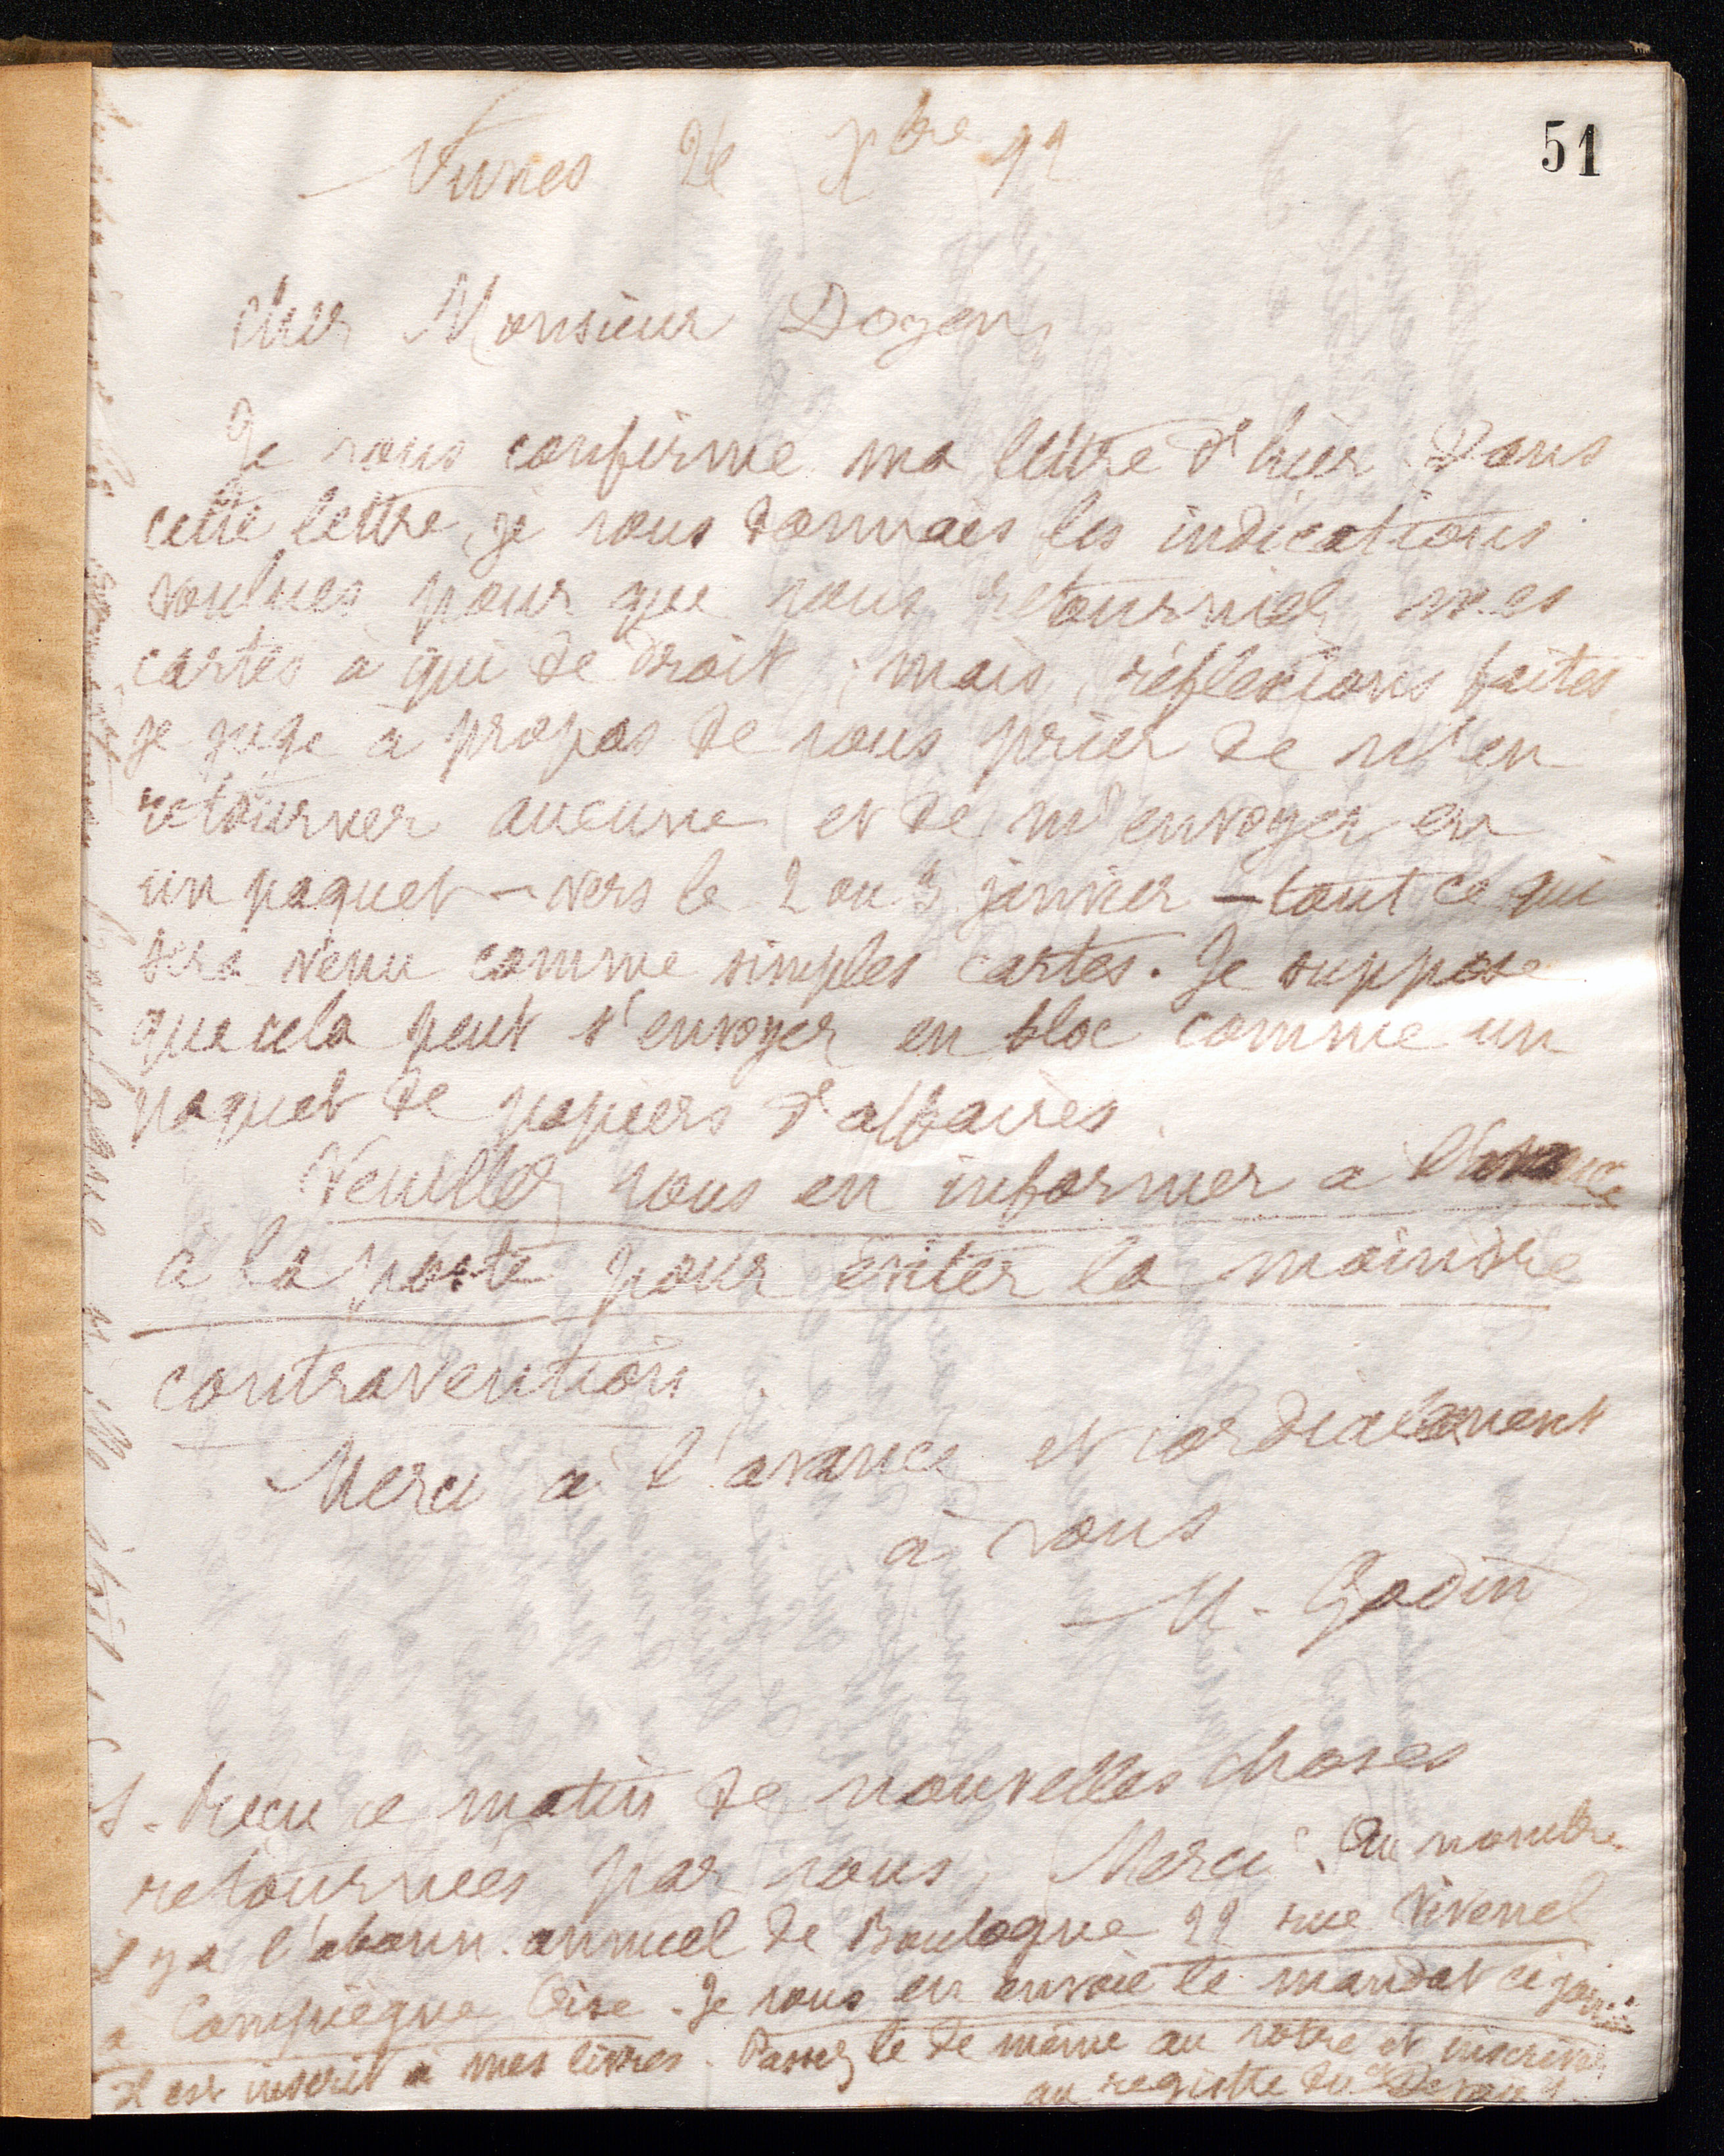 51
Nimes 26 Xbre 92
Cher Monsieur Doyen,
Je vous confirme ma lettre d'hier Dans
cette lettre, je vous donnais les indications
voulues pour que vous retourniez mes
cartes à qui de droit ; mais, réflexions faites,
je juge à propos de vous prier de n'en
retourner aucune et de m'envoyer en
un paquet — vers le 2 ou 3 janvier — tout ce qui
sera venu comme simples cartes. Je suppose
que cela peut s'envoyer en bloc comme un
paquet de papiers d'affaires.
Veuillez vous en informer à l'avance
à la poste pour éviter la moindre
contravention.
Merci à l'avance et cordialement
à vous
M. Godin
S. Reçu ce matin de nouvelles choses
retournées par vous, Merci. Au nombre
il y a l'abonn. annuel de Boulogne 22 rue Vivenel
à Compiègne Oise. Je vous en envoie le mandat ci joint
Il est inscrit à mes livres. Passez le de même au vôtre et inscrivez
au registre du